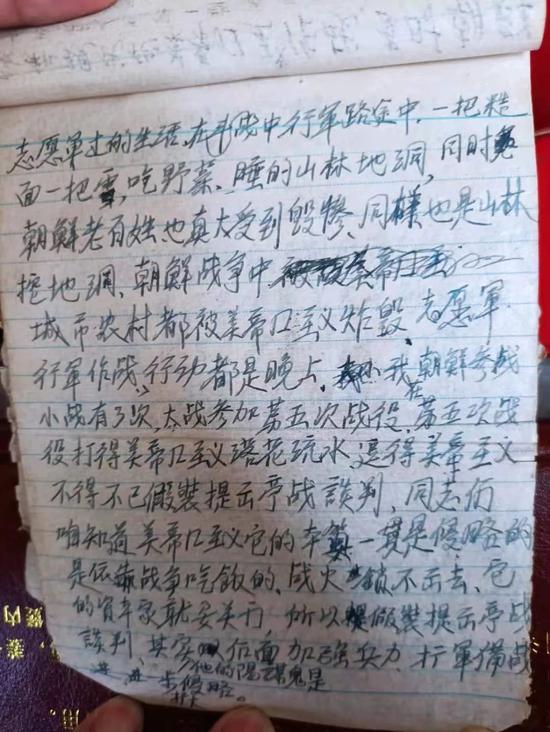 志愿军过的生活、在战中行军路途中、一把粭
面一把雪，吃野菜、睡的山林地洞，同时
朝鲜老百姓也真大受到毁惨、同様也是山林
挖地洞、朝鲜战争中
城市农村都被美帝口主义炸毁 志愿军、
行军作战，行动都是晚上、我在朝鲜参战
小战有3次，大战参加第五次战役、第五次战
役打得美帝口主义落花流水、迫得美帝主义
不得不已假装提示停战談判，同志们
咱知道美帝口主义它的本算一贯是侵略的
是依靠战争吃飯的、战火销不出去、它
的資本家就要关门 所以假装提示停战
談判、其实后面加强兵力、扩軍備战
进一步侵略。
他的陽謀鬼是